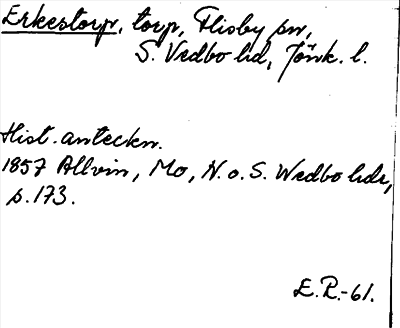 Erkestorp, torp, Flisby sn,
S. Vedbo hd, Jönk. l.
Hist. anteckn.
1857 Allvin, Mo, N. o. S. Wedbo hdr,
s. 173.
E.R.-61.